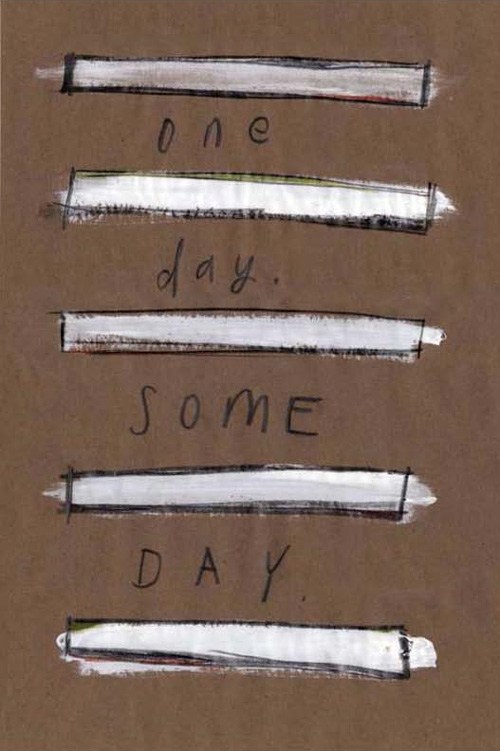 one
day.
SOME
DAY.